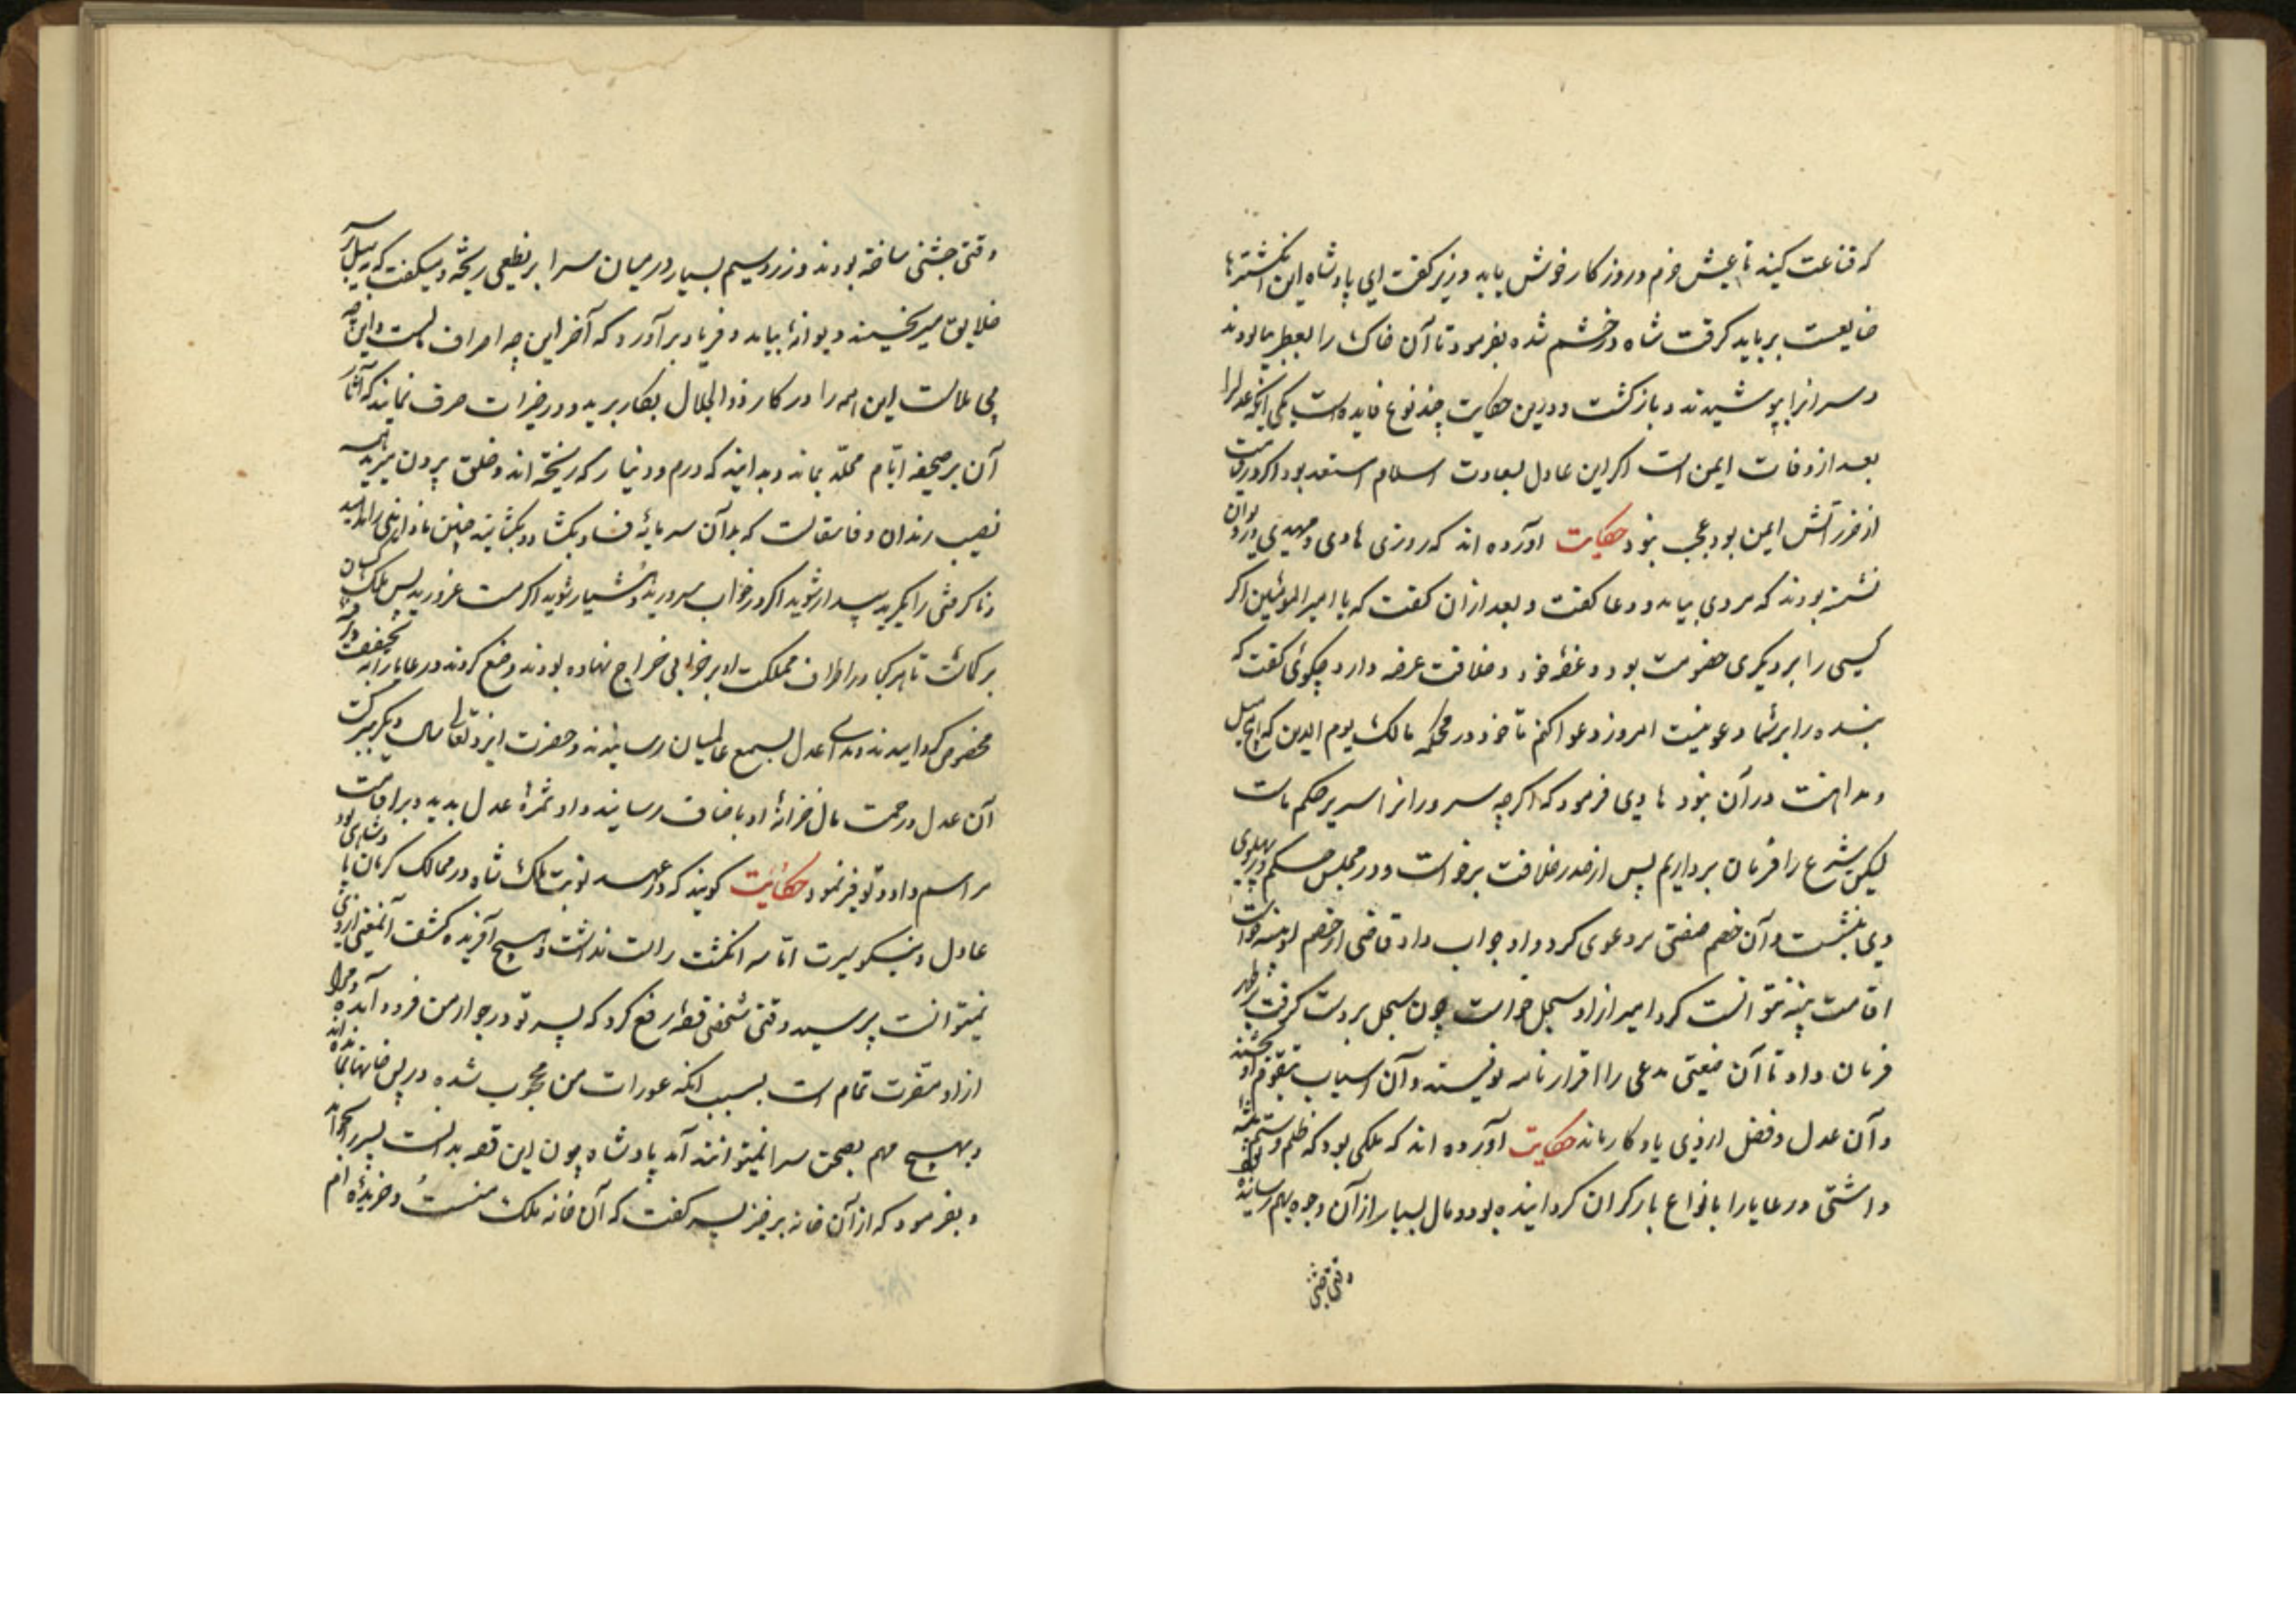 که قناعت کنید تا عیش خرم و روزکار خوش یابد وزیر کفت ای پادشاه این انکشتریها
ضایعست برباید کرفت شاه در خشم شده بفرمود تا آن خاک را بعطر بیالودند
و سر انرا بپوشیدند و باز کشت و درین حکایت چند نوع فایده است یکی آنکه عدل را
بعد از وفات ایمن است اکر این عادل بسعادت اسلام استعد بود اکر در قیامت
از ضرر آتش ایمن بود عجب نبود حکایت آورده اند که روزی هادی ومهدی در دیوان
نشسته بودند که مردی بیامد و دعا کفت و بعد ازان کفت که یا امیر المومنین اکر
کسی را بر دیکری خصومت بود و غصه خود و خلافت عرضه دارد چکوئی کفت که
بنده را بر شما دعویست امروز دعوا کنم تا خود در محکمه مالک یوم الدین که هیچ میل
و مداهنت در آن نبود هادی فرمود که اکرچه سروران اسیر حکم ماست
لیکن شرع را فرمان برداریم پس از صدر خلافت برخواست و در مجلس حکم در پهلوی
وی بنشست و آن خصم صفتی بر دعوی کرد و او جواب داد قاضی از خصم او بینه خواست
اقامت بینه نتوانست کرد امیر ازاو سجل خواست چون سجل بر دست کرفت
فرمان داد تا آن ضیعتی مدعی را اقرار نامه نویسند و آن اسباب بقوم او بخشند
و آن عدل و فضل از وی یادکار ماند حکایت آورده اند که ملکی بود که ظلم و ستم
داشتی و رعایا را بانواع بار کران کردانیده بود و مال بسیار از آن وجوه بهم رسانیده
وقتی جشنی
وقتی جشنی ساخته بودند و زر و سیم بسیار در میان سرا بر نطعی ریخته و میکفت که
خلایق میریختند دیوانهٔ بیامد و فریاد برآورد که آخر این چه اسراف است و این چه
بی‌علالت این همه را در کار ذوالجلال بکار برید و در خیرات صرف نمایند که آثار
آن بر صحیفه ایام مخلد بماند و بدانید که درم و دینار که ریخته اند و خلق برون میبرند
نصیب رندان و فاسقانست که بدآن سرمایهٔ فساد بکشاد
و ناکرفتی را بکیرید بیدار شوید اکر در خواب سرورید و هشیار شوید اکر مست غرورید پس ملک
برکماشت تا هر کجا در اطراف مملکت او بر خوابی خراج نهاده بودند وضع کردند و رعایا را به تخفیف
مخصوص کردانیدند و ندای عدل بسمع عالمیان رسانیدند و حضرت ایزد تعالی سال دیکر ببرکت
آن عدل و رحمت مال خزانهٔ او باضعاف رسانید و او ثمرهٔ عدل بدید و بر اقامت
مراسم داد و توفیر نمود حکایت کویند که در عهد نوبت ملک شاه در ممالک کرمان پادشاهی بود
عادل و نیکو سیرت اما سه انکشت راست نداشت و هیچ آفریده کشف آنمعنی ازو
نمیتوانست پرسید وقتی شخصی قصه رفع کرد که پسر تو در جوار من فرود آمده و مرا
ازاو مضرت تمام است بسبب انکه عورات من محجوب شده در پس خانها بمانده اند
و بهیچ مهم بصحن سرا نمیتوانند آمد پادشاه چون این قصه بدانست پسر را بخواند
و بفرمود که از آن خانه برخیز پسر کفت که آن خانه ملک منست و خریدهٔ ام